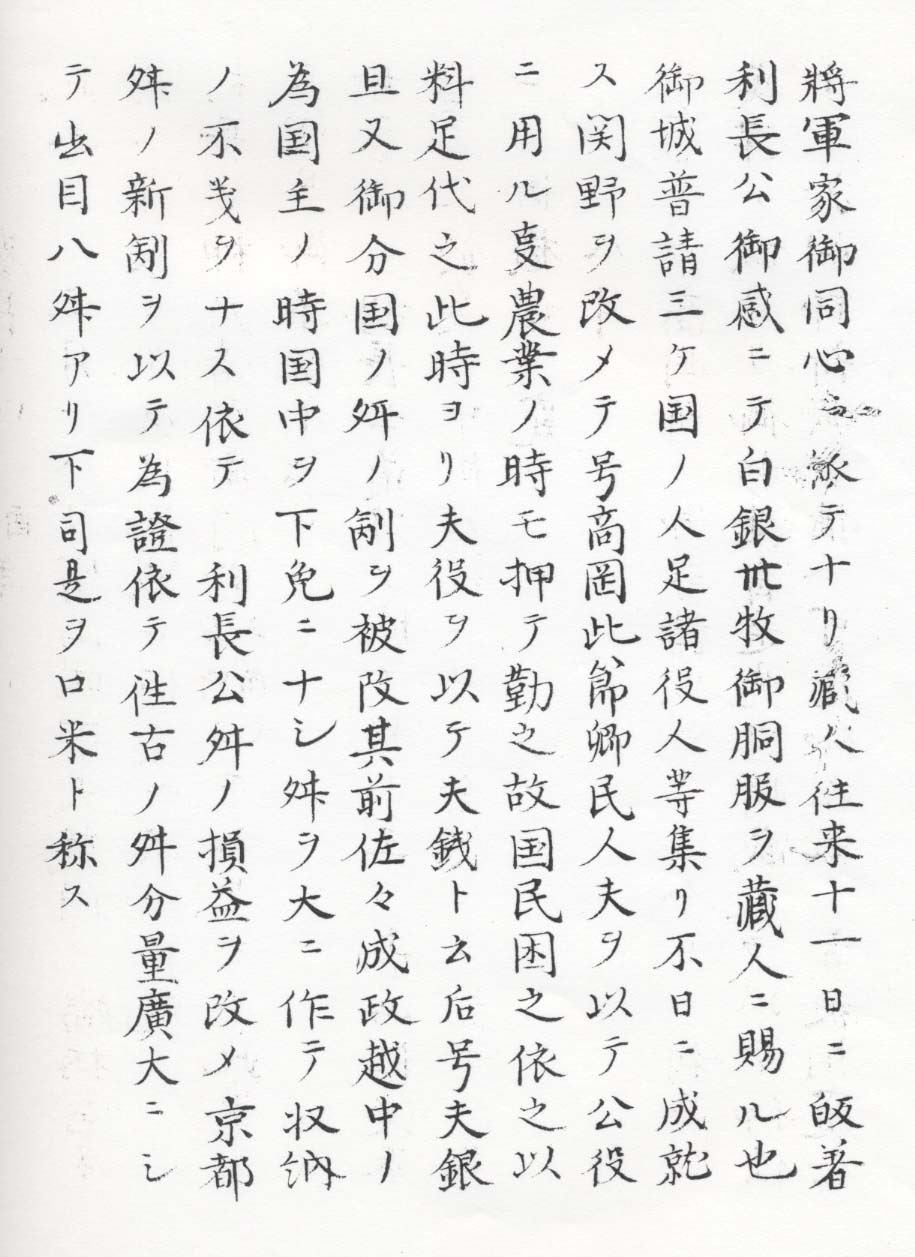 將軍家御同心ニ依テナリ藏人往来十一日ニ皈著
利長公御感ニテ白銀卅牧御胴服ヲ藏人ニ賜ル也
御城普請三ケ国ノ人足諸役人等集リ不日ニ成就
ス関野ヲ改メテ号高岡此節郷民人夫ヲ以テ公役
ニ用ル叓農業ノ時モ押テ勤之故国民困之依之以
料足代之此時ヨリ夫役ヲ以テ夫銭ト云后号夫銀
且又御分国ノ舛ノ制ヲ被改其前佐々成政越中ノ
為国主ノ時国中ヲ下免ニナシ舛ヲ大ニ作テ収納
ノ不義ヲナス依テ　利長公舛ノ損益ヲ改メ京都
舛ノ新制ヲ以テ為證依テ徃古ノ舛分量廣大ニシ
テ出目八舛アリ下司是ヲ口米ト称ス